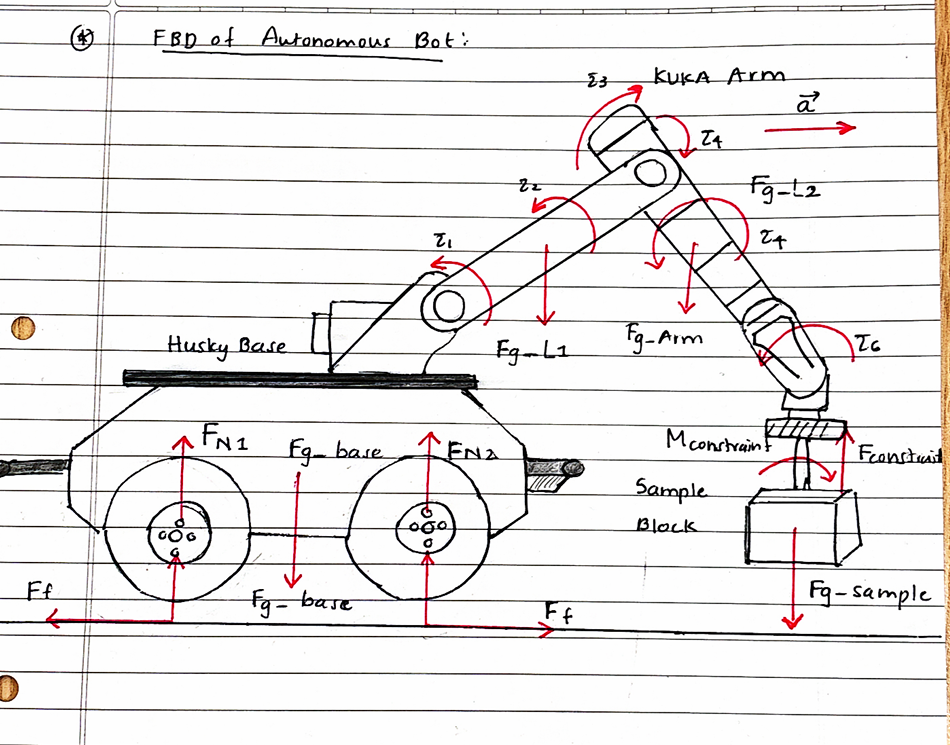 * FBD of Autonomous Bot:
τ3 KUKA Arm
a
τ4
τ2 Fg-L2
τ1 τ4
Husky Base Fg-L1 Fg-Arm τ6
FN1 Fg-base FN2 Mconstraint Fconstraint
Sample
Block
Ff Fg-base Ff Fg-sample